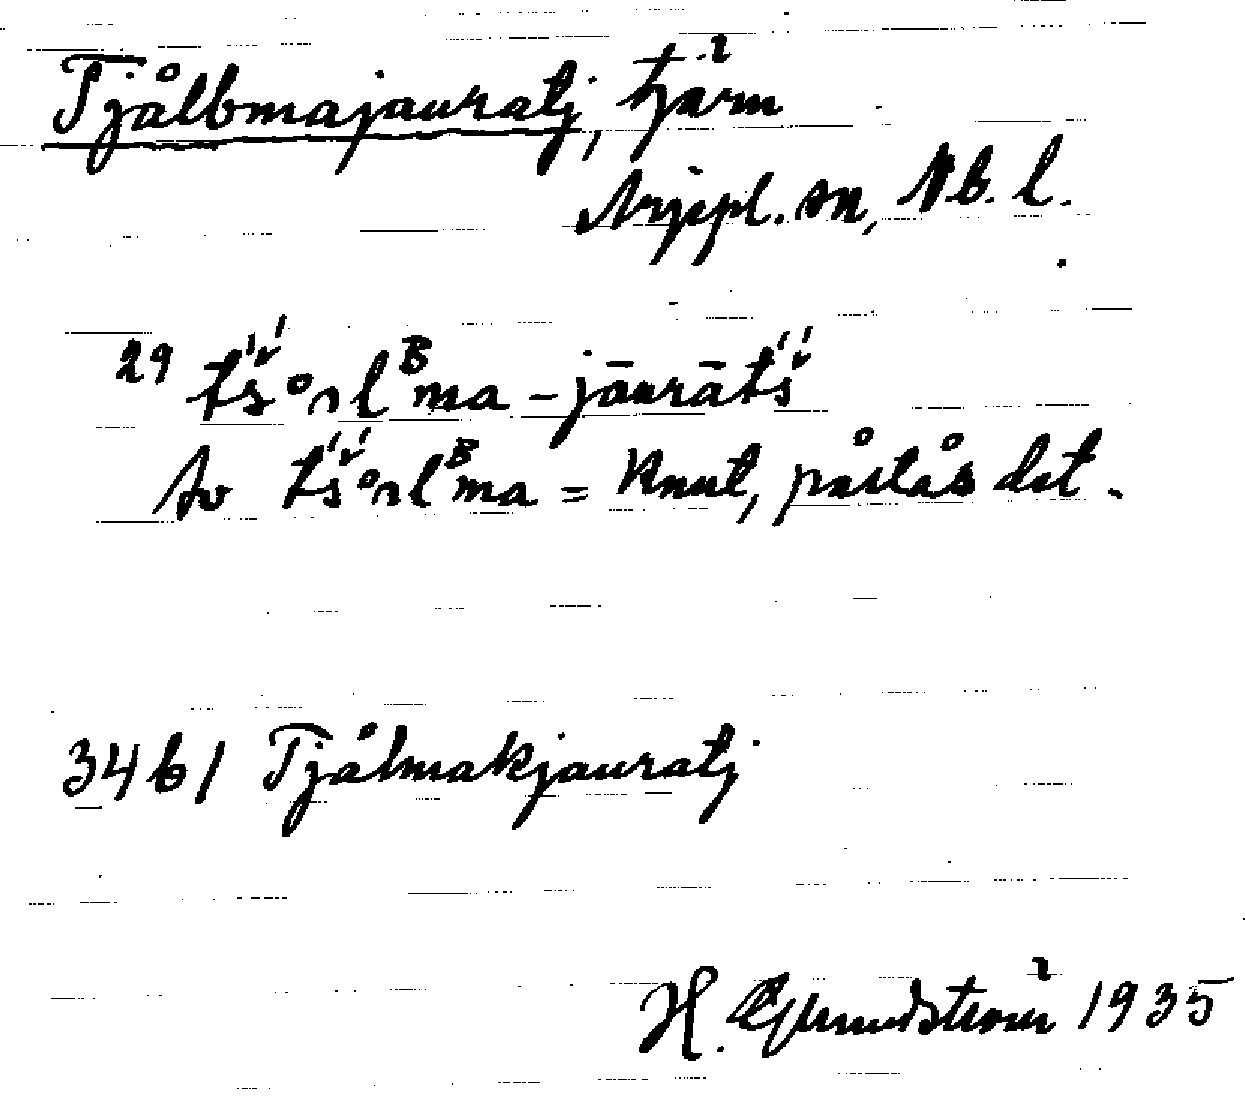 Tjålbmajauratj, tjärn
Arjepl. sn, Nb. l.
29 tš́ᵒʌlᴮma-jāurātš́
Av tš́ᵒʌlᴮma = Knut, påstås det.
3461 Tjålmakjauratj
H. Grundström 1935